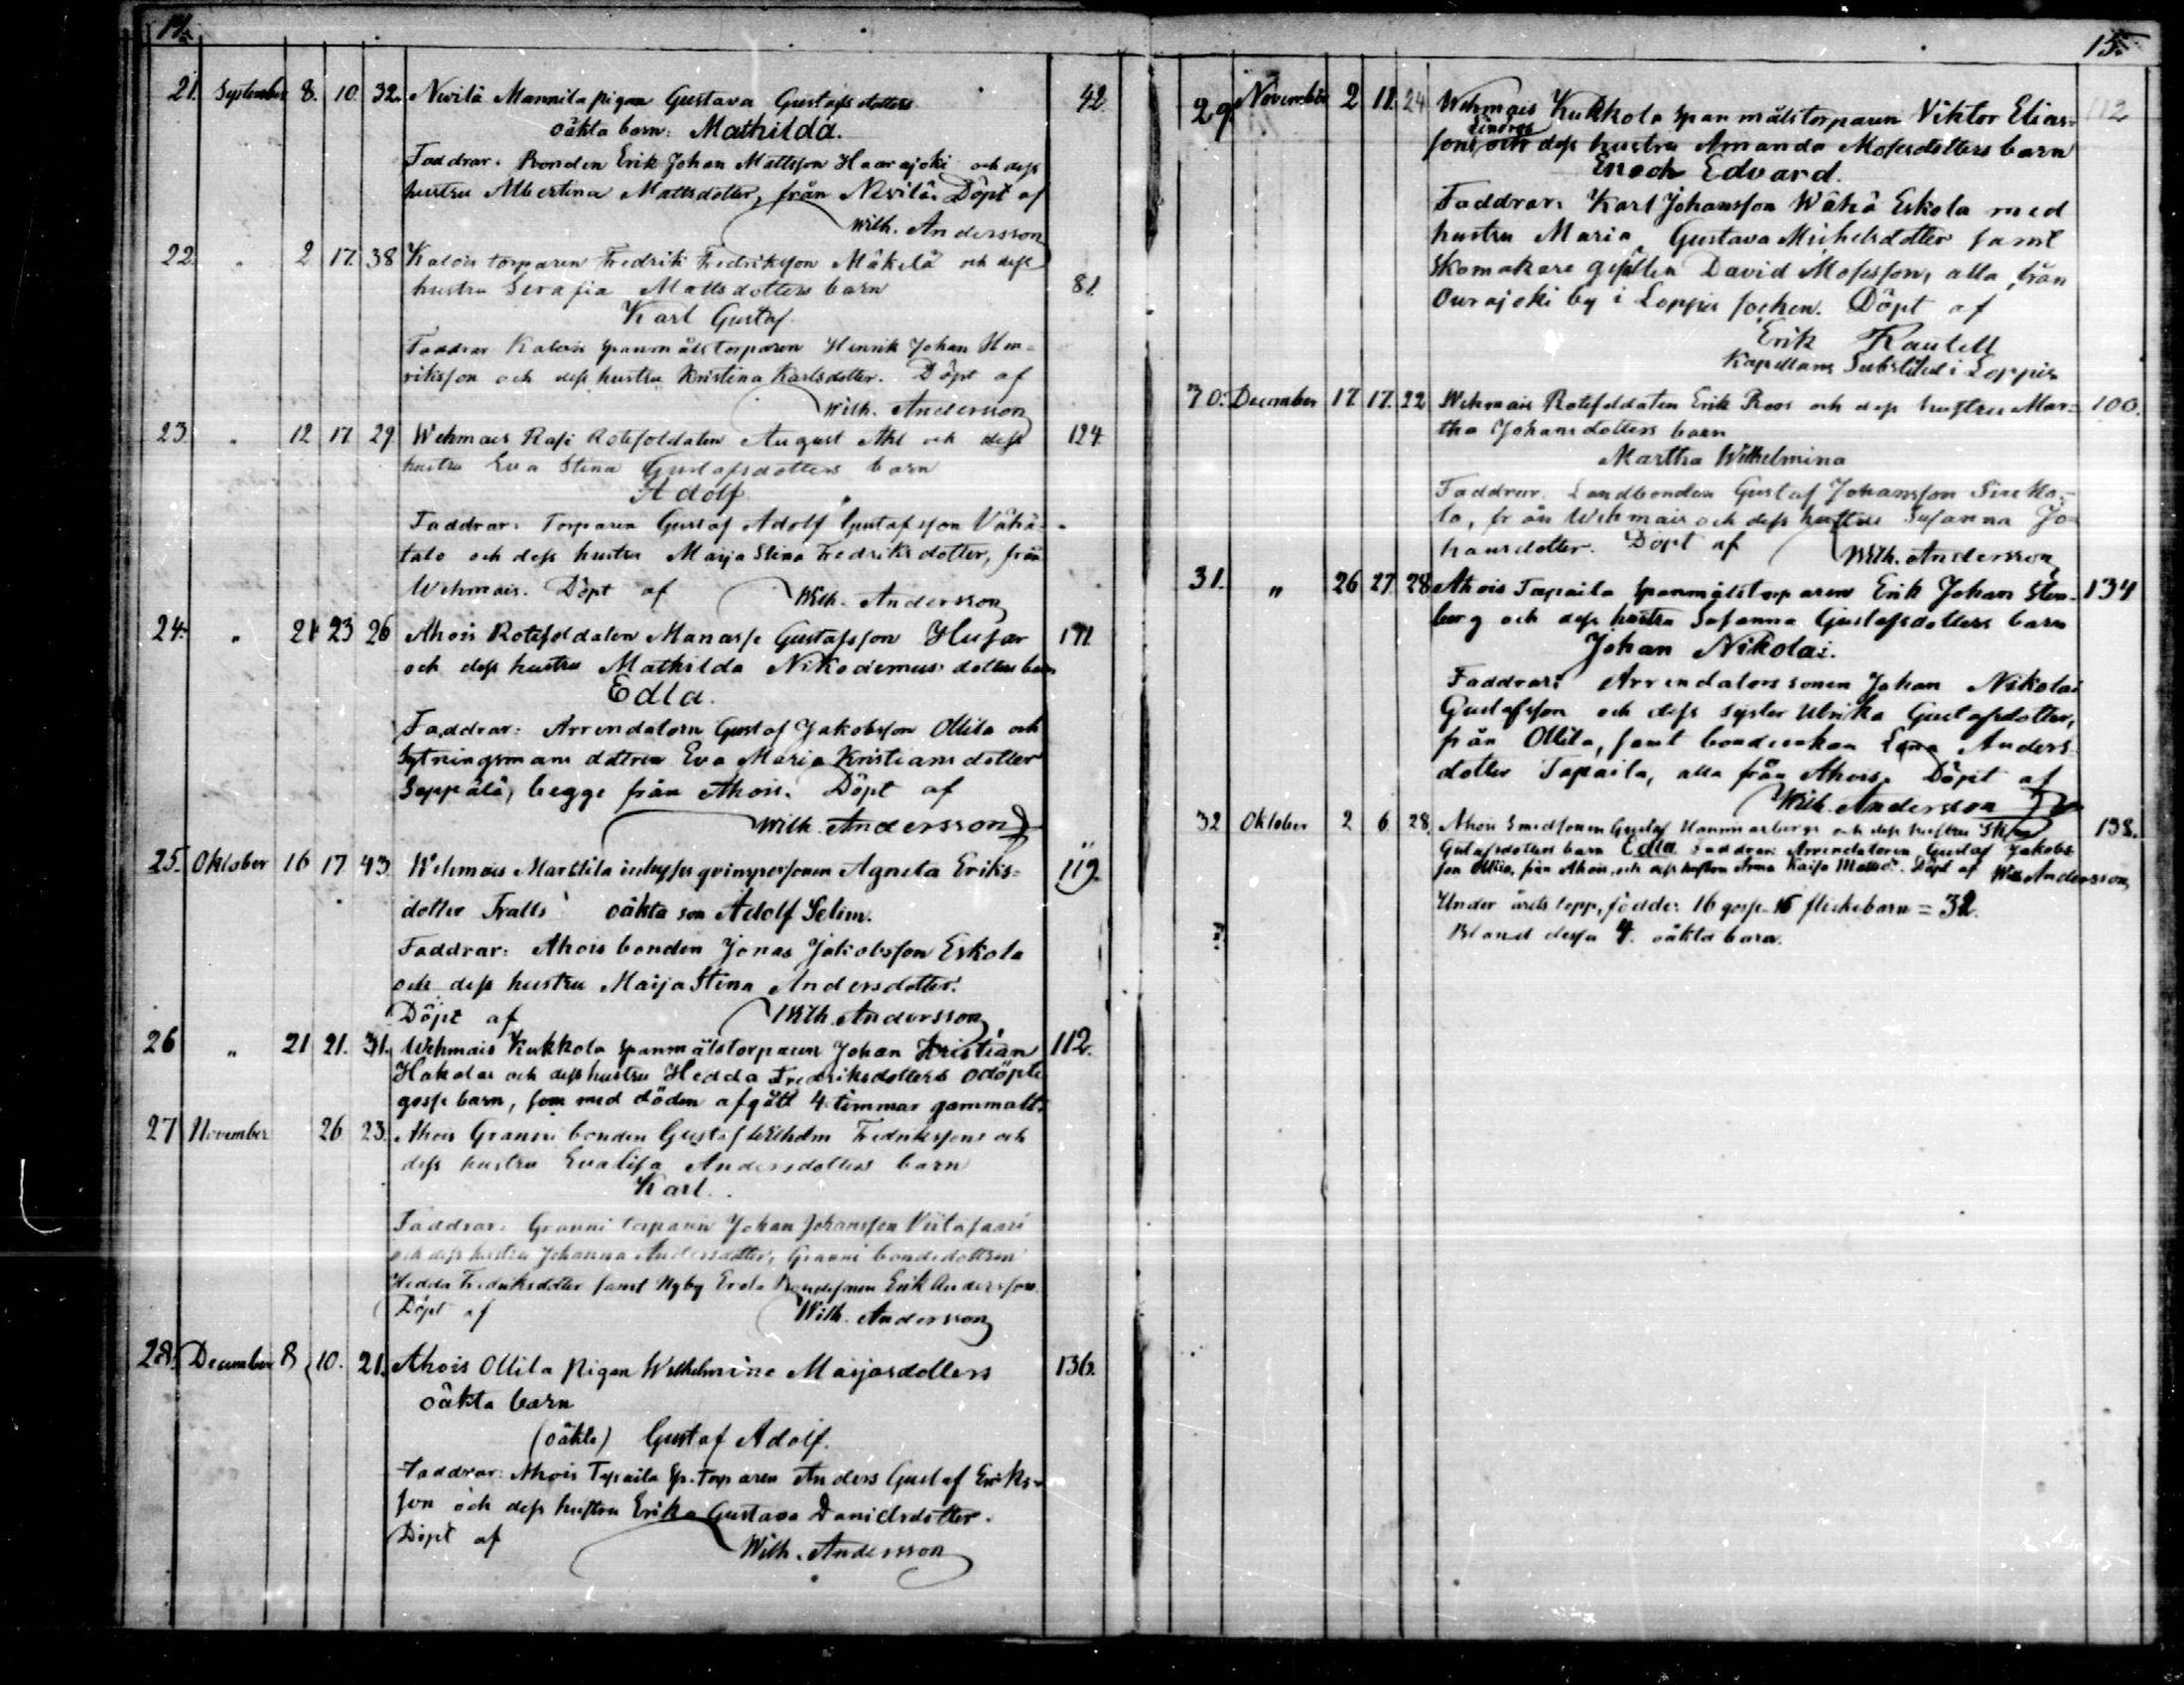 14.
21. September 8. 10. 32. Nevilä Mannila pigan Gustava Gustafsdotters 42.
oäkta barn: Mathilda.
Faddrar: Bonden Erik Johan Mattsson Haarajoki och dess
hustru Albertina Mattsdotter, från Nevilä. Döpt af
Wilh. Andersson
22. " 2 17. 38 Kalois torparen Fredrik Fredriksson Mäkelä och dess
hustru Serafia Mattsdotters barn 81.
Karl Gustaf
Faddrar Kalois spanmålstorparen Henrik Johan Hen-
riksson och dess hustru Kristina Karlsdotter. Döpt af
Wilh. Andersson
23. " 12 17 29 Wehmais Rasi Rotesoldaten August Ahl och dess 124.
hustru Eva Stina Gustafsdotters barn
Adolf
Faddrar: Torparen Gustaf Adolf Gustafsson Vähä-
talo och dess hustru Maija Stina Fredriksdotter, från
Wehmais. Döpt af Wilh. Andersson
24. " 21 23 26 Ahois Rotesoldaten Manasse Gustafsson Husar 171.
och dess hustru Mathilda Nikodemusdotters barn
Edla.
Faddrar: Arrendatorn Gustaf Jakobsson Ollila och
Sytningsmans dottren Eva Maria Kristiansdotter
Seppälä, begge från Ahois. Döpt af
Wilh. Andersson
25. Oktober 16 17 43. Wehmais Marttila inhyses qvinspersonen Agneta Eriks- 119.
dotter Tralls oäkta son Adolf Selim.
Faddrar: Ahois bonden Jonas Jakobsson Eskola
och dess hustru Maija Stina Andersdotter.
Döpt af Wilh. Andersson
26 " 21 21. 31. Wehmais Kukkola spanmålstorparen Johan Kristian 112.
Hakolas och dess hustru Hedda Fredriksdotters odöpte
gosse barn, som med döden afgått 4 timmar gammalt.
27 November 26 23. Ahois Granni bonden Gustaf Wilhelm Fredrikssons och
dess hustru Evalisa Andersdotters barn
Karl.
Faddrar: Granni torparen Johan Johansson
och dess hustru Johanna Andersdotter, Granni bondedottren
Hedda Fredriksdotter samt Nyby Erola Bondesonen Erik Andersson.
Döpt af Wilh. Andersson
28. December 8 10. 21. Ahois Ollila pigan Wilhelmina Maijasdotters 136.
oäkta barn
(oäkta) Gustaf Adolf.
Faddrar: Ahois Tapaila Sp. torparen Anders Gustaf Eriks-
son och dess hustru Erika Gustava Danielsdotter.
Döpt af Wilh. Andersson
15.
29 November 2 11. 24 Wehmais Kukkola spanmålstorparen Viktor Elias- 112
sons och dess hustru Amanda Mosesdotters barn
Enoch Edvard.
Faddrar: Karl Johansson Wähä Eskola med
hustru Maria, Gustava Michelsdotter samt
Skomakare gesällen David Mosesson, alla från
Ourajoki by i Loppis socken. Döpt af
Erik Rautell
Kapellans Substitut i Loppis
30. December 17. 17. 22 Wehmais Rotesoldaten Erik Roos och dess hustru Mar- 100.
tha Johansdotters barn
Martha Wilhelmina
Faddrar. Landbonden Gustaf Johansson
la, från Wehmais och dess hustru Susanna Jo-
hansdotter. Döpt af Wilh. Andersson
31. " 26 27. 28 Ahois Tapaila spanmålstorparen Erik Johan Sten- 134
berg och dess hustru Susanna Gustafsdotters barn
Johan Nikolai.
Faddrar: Arrendators sonen Johan Nikolai
Gustafsson och dess syster Ulrika Gustafsdotter,
från Ollila, samt bondenkan Anders-
dotter Tapaila, alla från Ahois. Döpt af
Wilh. Andersson
32 Oktober 2 6 28. Ahois Smedsonen Gustaf Hammarbergs och dess hustru 138.
Gustafsdotters barn Edla Faddrar: Arrendatoren Gustaf Jakobs-
son Ollila, från Ahois, och dess hustru Anna Kaisa Mattsdr. Döpt af Wilh. Andersson
Under årets lopp, födde: 16 gosse- 16 flickebarn = 32.
Bland dessa 4. oäkta barn.